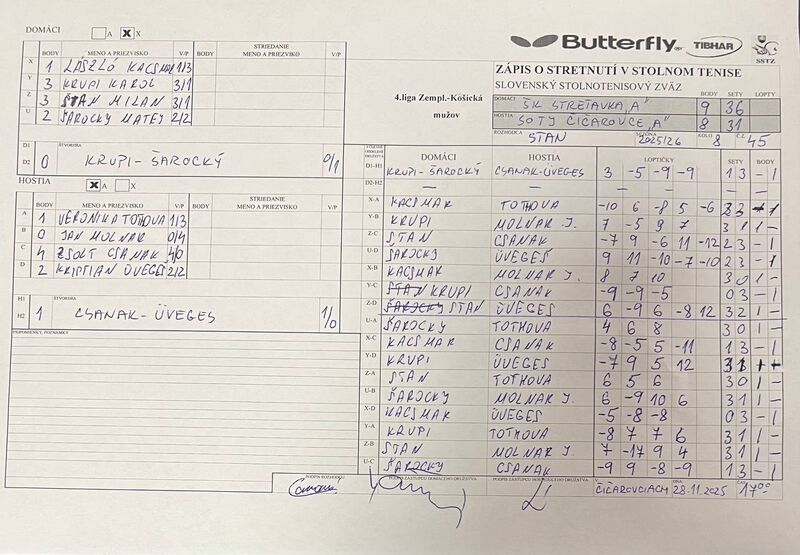 DOMÁCI A X
Butterfly TIBHAR SSTZ
BODY MENO A PRIEZVISKO V/P BODY STRIEDANIE MENO A PRIEZVISKO V/P
X 1 LÁSZLÓ KACSMAR 1/3
Y 3 KRUPI KAROL 3/1
Z 3 STAN MILAN 3/1
U 2 ŠAROCKY MATEJ 2/2
D1 ŠTVORHRA
D2 0 KRUPI-ŠAROCKÝ 0/1
HOSTIA X A X
BODY MENO A PRIEZVISKO V/P BODY STRIEDANIE MENO A PRIEZVISKO V/P
A 1 VERONIKA TOTHOVA 1/3
B 0 JAN MOLNAR 0/4
C 4 ZSOLT CSANAK 4/0
D 2 KRISTIAN ÜVEGES 2/2
H1 ŠTVORHRA
H2 1 CSANAK-ÜVEGES 1/0
PRIPOMIENKY, POZNÁMKY
4.liga Zempl.-Košická
mužov
ZÁPIS O STRETNUTÍ V STOLNOM TENISE
SLOVENSKÝ STOLNOTENISOVÝ ZVÄZ BODY SETY LOPTY
DOMÁCI ŠK STRETAVKA „A" 9 36
HOSTIA SOTJ ČIČAROVCE „A" 8 31
ROZHODCA STAN SEZÓNA 2025/26 KOLO 8 Č.Z. 45
DOMÁCI HOSTIA LOPTIČKY SETY BODY
D1-H1 KRUPI-ŠAROCKÝ CSANAK-ÜVEGES 3 -5 -9 -9 1 3 - 1
D2-H2 — —
X-A KACSMAR TOTHOVA -10 6 -8 5 -6 2 3 - 1
Y-B KRUPI MOLNAR J. 7 -5 9 7 3 1 1 -
Z-C STAN CSANAK -7 9 -6 11 -12 2 3 - 1
U-D ŠAROCKY ÜVEGES 9 11 -10 -7 -10 2 3 - 1
X-B KACSMAR MOLNAR J. 8 7 10 3 0 1 -
Y-C STAN KRUPI CSANAK -9 -9 -5 0 3 - 1
Z-D ŠAROCKY STAN ÜVEGES 6 -9 6 -8 12 3 2 1 -
U-A ŠAROCKY TOTHOVA 4 6 8 3 0 1 -
X-C KACSMAR CSANAK -8 -5 5 -11 1 3 - 1
Y-D KRUPI ÜVEGES -7 9 5 12 3 1 1 -
Z-A STAN TOTHOVA 6 5 6 3 0 1 -
U-B ŠAROCKY MOLNAR J. 6 -9 10 6 3 1 1 -
X-D KACSMAR ÜVEGES -5 -8 -8 0 3 - 1
Y-A KRUPI TOTHOVA -8 7 7 6 3 1 1 -
Z-B STAN MOLNAR J 7 -17 9 4 3 1 1 -
U-C ŠAROCKY CSANAK -9 9 -8 -9 1 3 - 1
PODPIS ROZHODCU PODPIS ZÁSTUPCU DOMÁCEHO DRUŽSTVA PODPIS ZÁSTUPCU HOSŤUJÚCEHO DRUŽSTVA V ČIČAROVCIACH DŇA 28.11.2025 ČAS 17⁰⁰